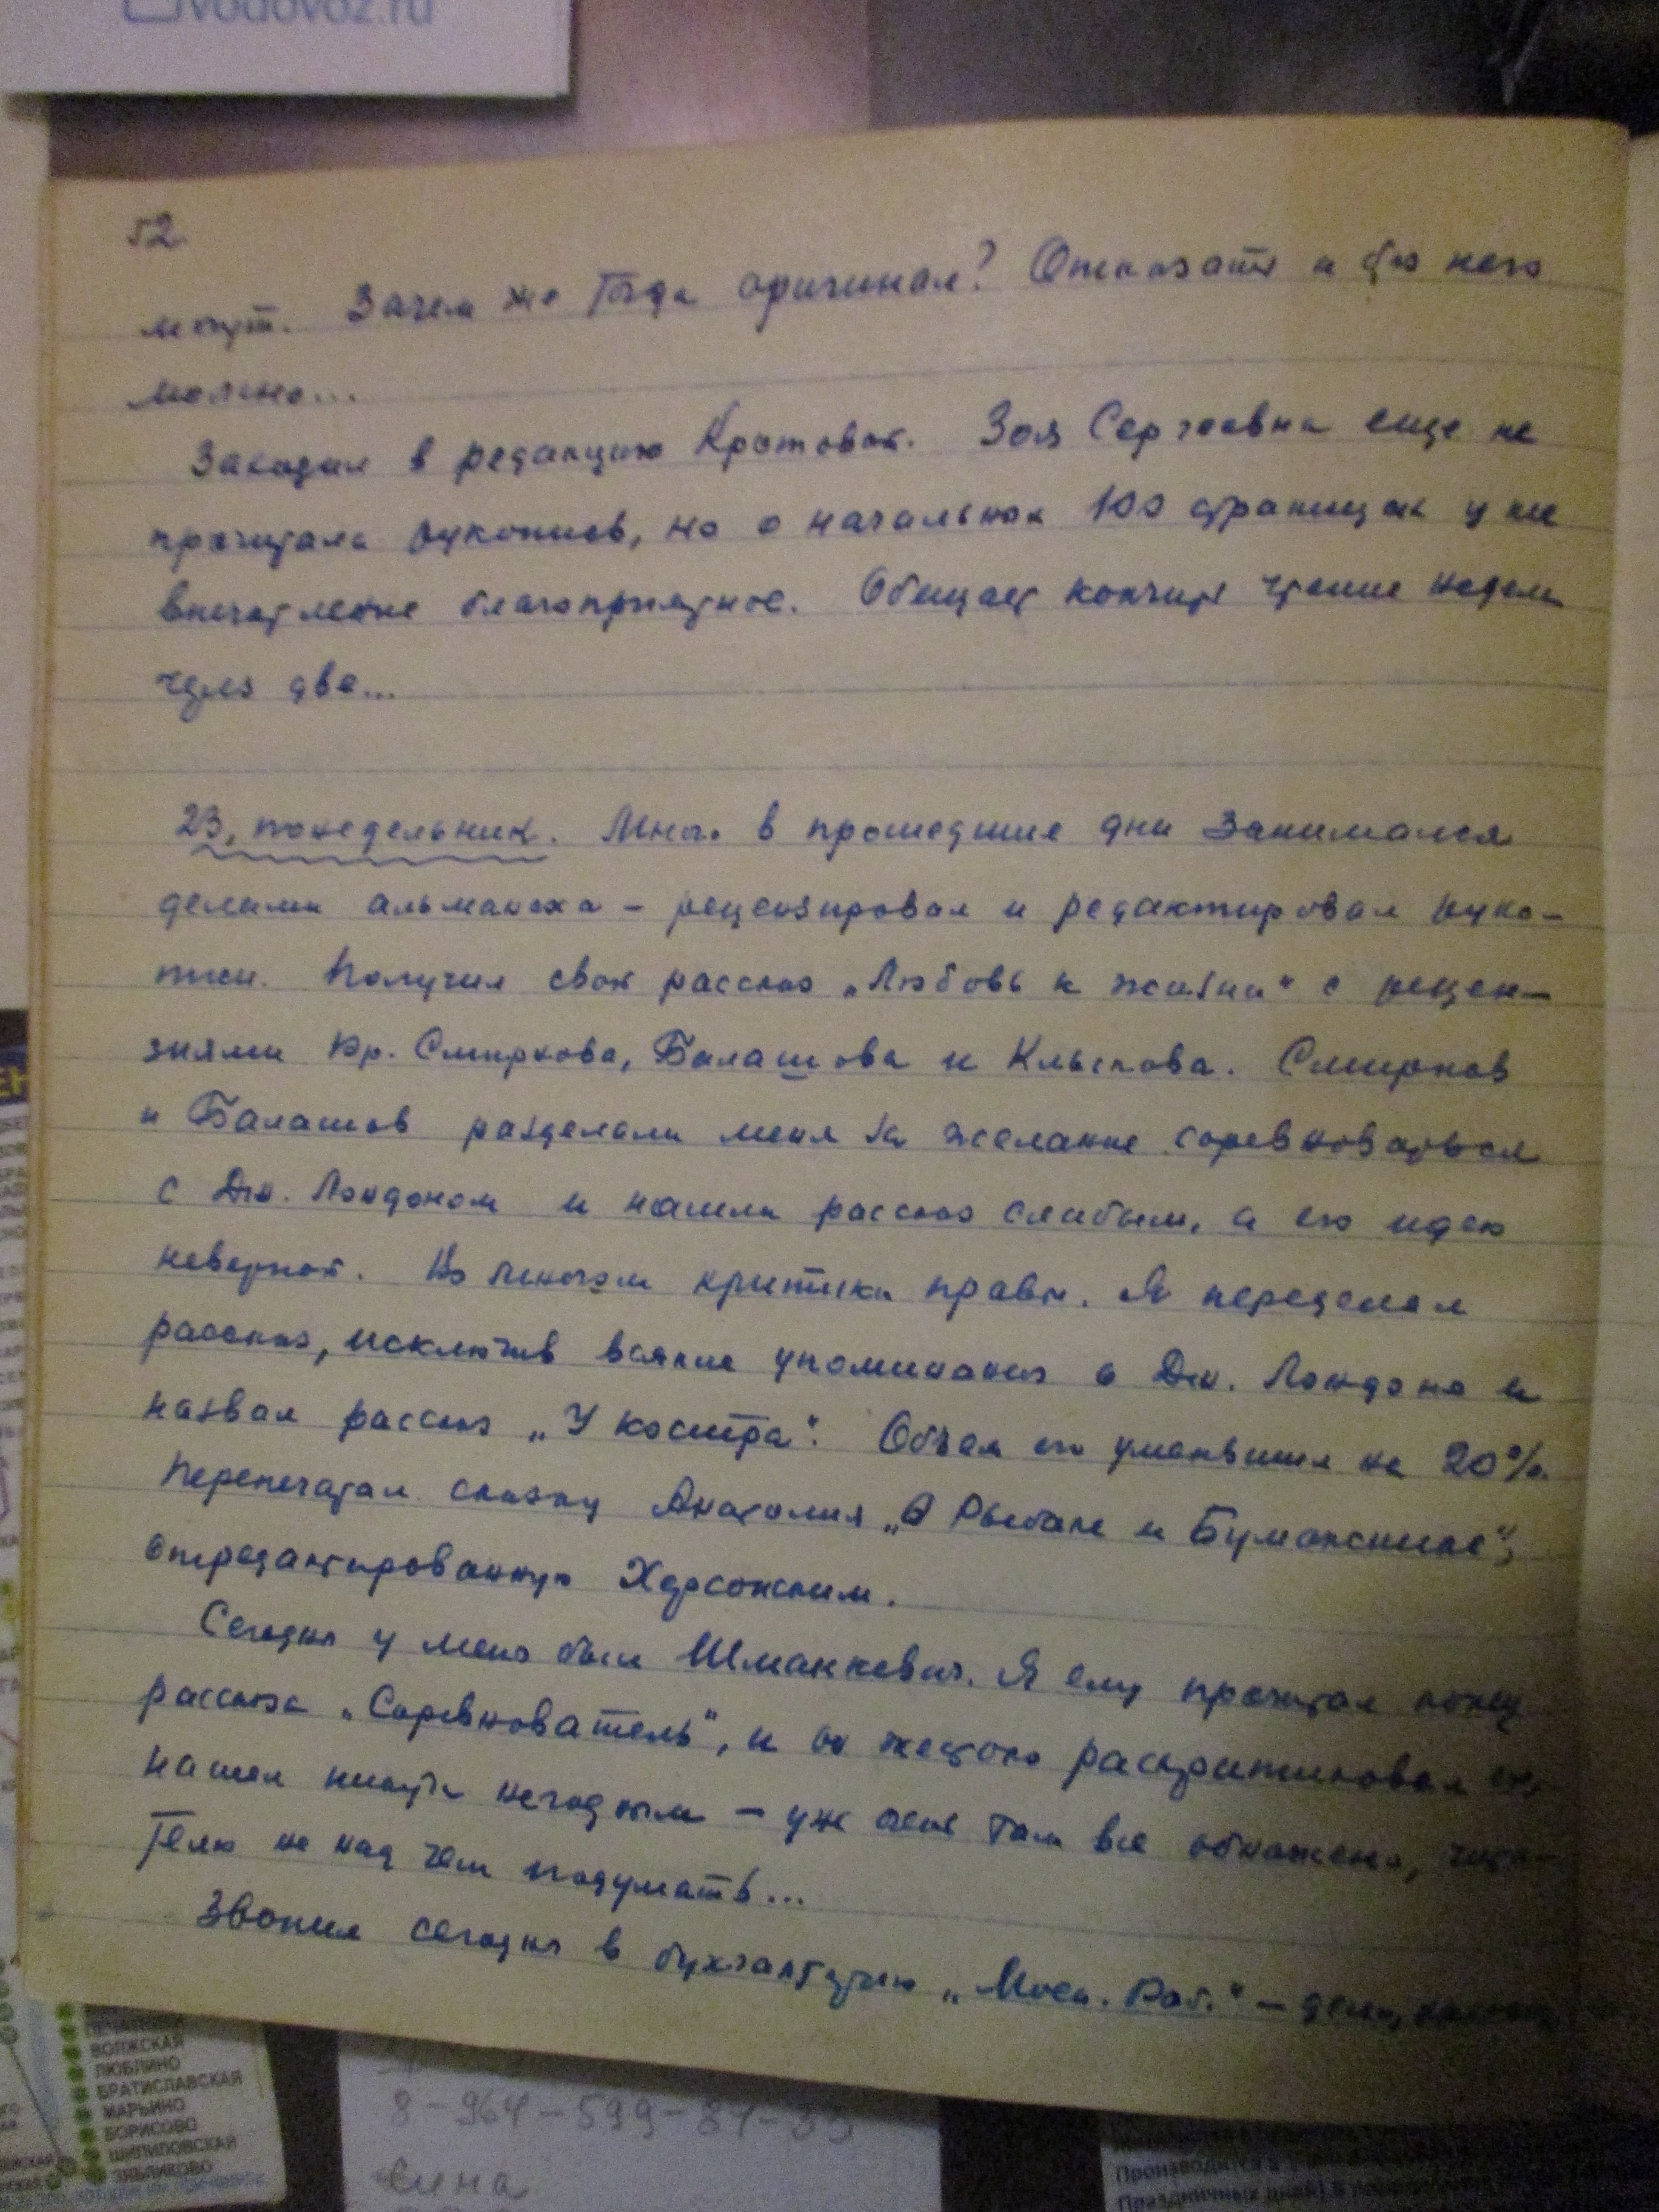 vodovoz.ru
52
могут. Зачем же тогда оригинал? Отказать и без него
можно...
Заходил в редакцию Кротовой. Зоя Сергеевна еще не
прочитала рукопись, но о начальных 100 страницах у нее
впечатление благоприятное. Обещает кончить чтение недели
через две...
23, понедельник. Много в прошедшие дни занимался
делами альманаха – рецензировал и редактировал руко-
писи. Получил свой рассказ „Любовь к жизни“ с рецен-
зиями Вр. Смирнова, Балашова и Клыкова. Смирнов
и Балашов разделали меня за желание соревноваться
с Дж. Лондоном и нашли рассказ слабым, а его идею
неверной. Во многом критики правы. Я переделал
рассказ, исключив всякие упоминания о Дж. Лондоне и
назвал рассказ „У костра“. Объем его уменьшил на 20%.
Перепечатал сказку Анатолия „О Рыбаке и Бумажнике“,
отредактированную Херсонским.
Сегодня у меня был Шманкевич. Я ему прочитал конец
рассказа „Соревнователь“, и он жестоко раскритиковал его,
нашел никуда негодным – уж очень там все обнажено, чита-
телю не над чем подумать...
Звонил сегодня в бухгалтерию „Моск. Раб.“ – деньги,
ВОЛЖСКАЯ
ЛЮБЛИНО
БРАТИСЛАВСКАЯ
МАРЬИНО
БОРИСОВО
ШИПИЛОВСКАЯ
ЗЯБЛИКОВО
8-964-599-81-33